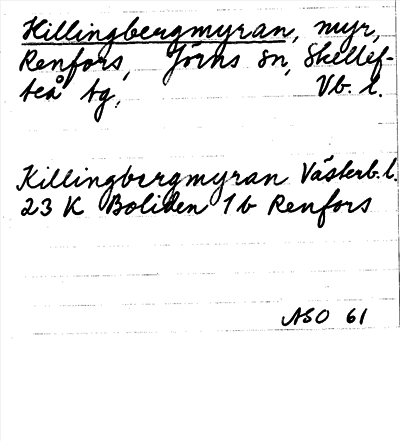 Killingbergmyran, myr,
Renfors, Jörns sn, Skellef-
teå tg, Vb. l.
Killingbergmyran Västerb. l.
23 K Boliden 1b Renfors
ASO 61